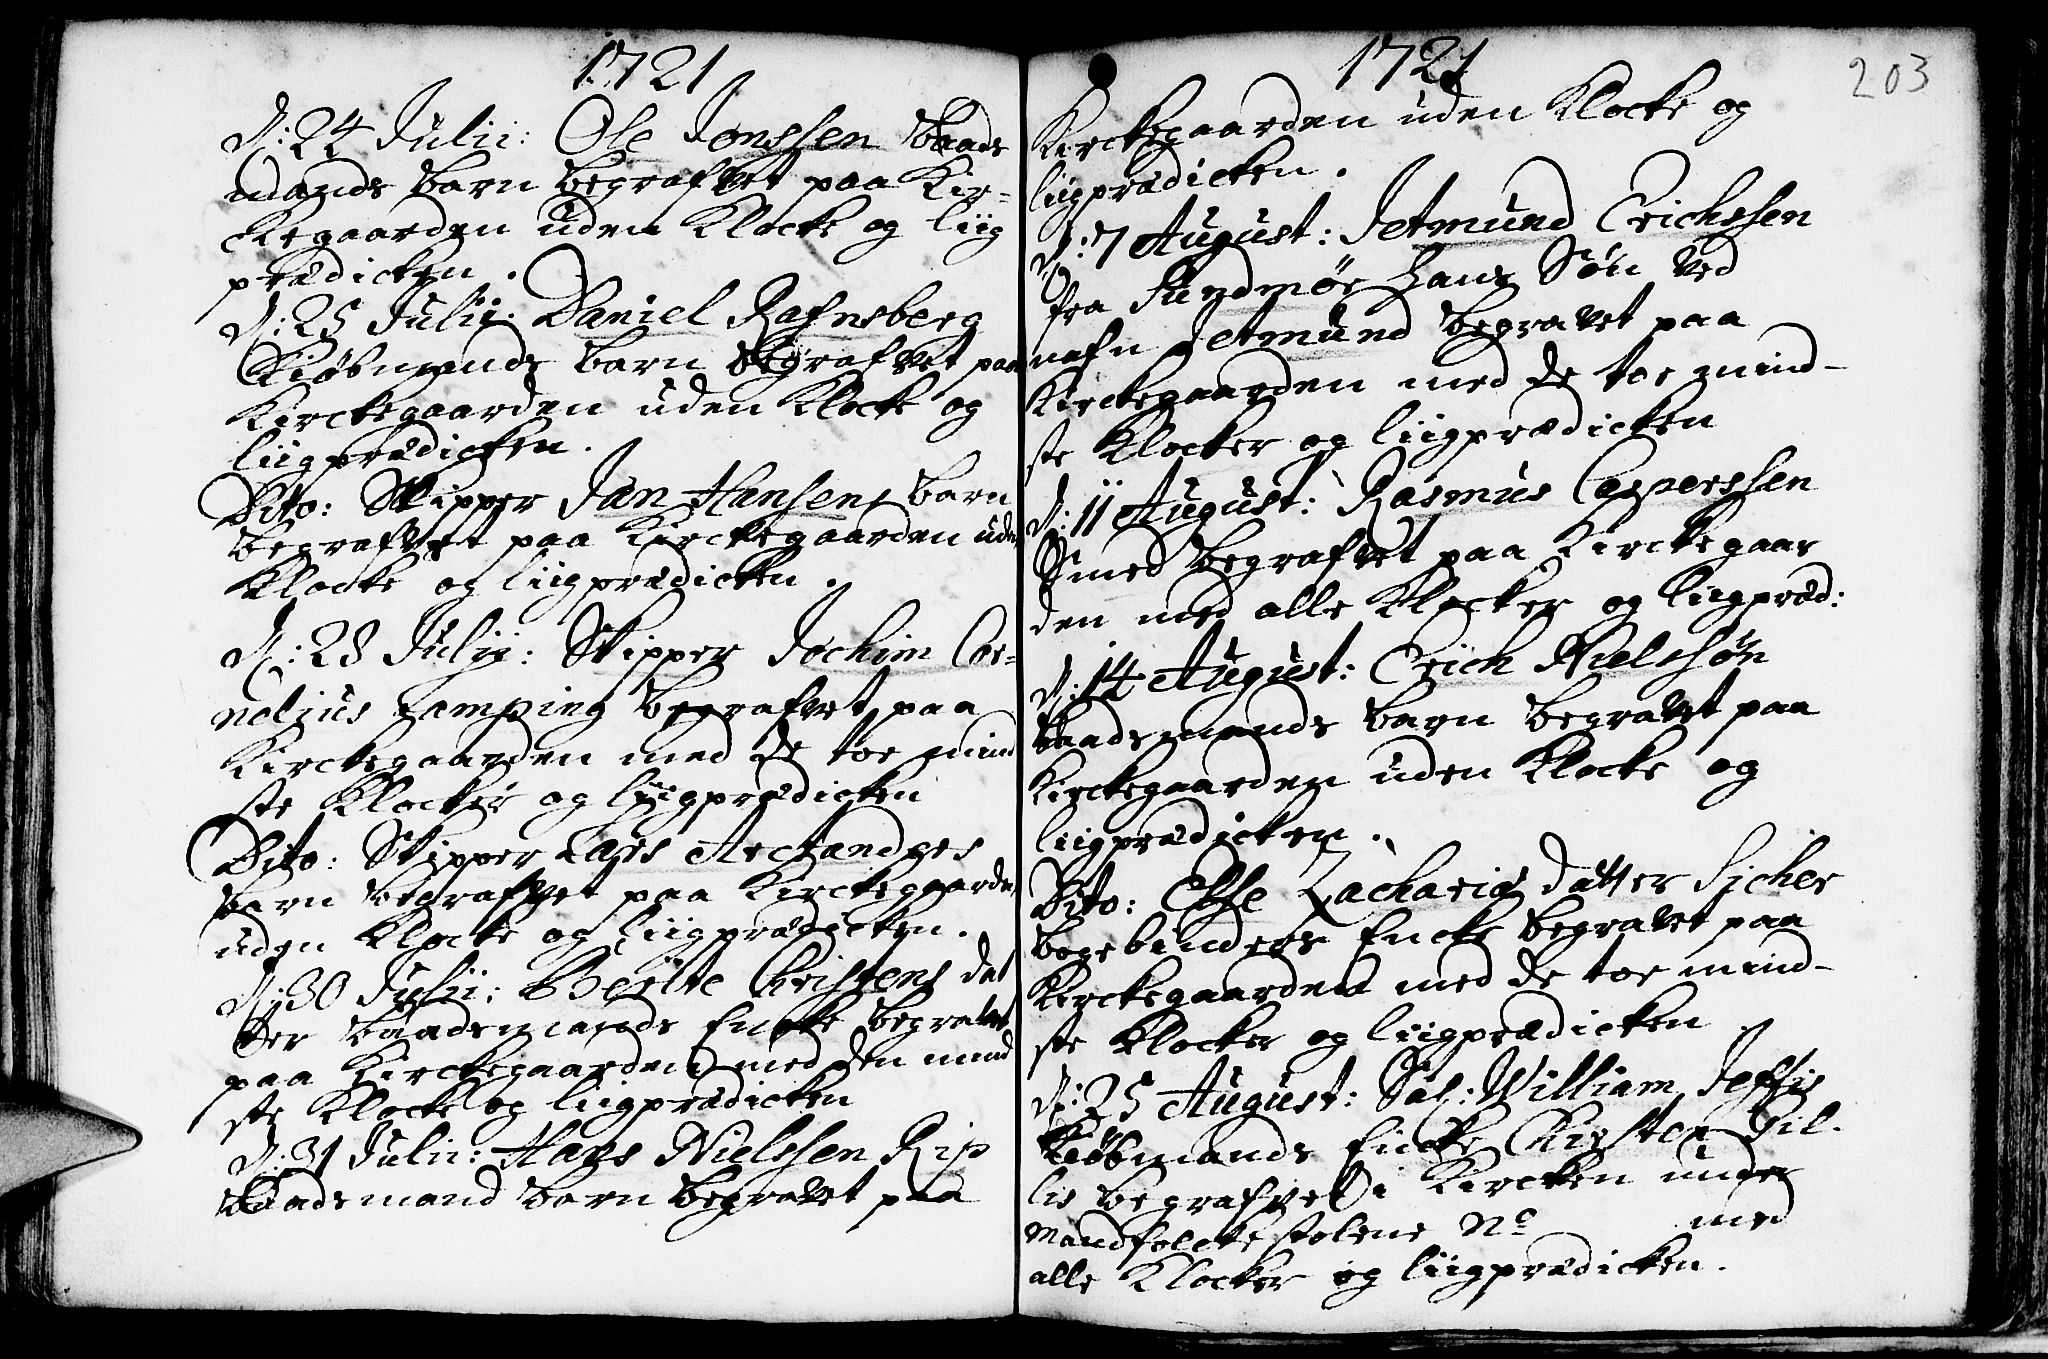 1721
D: 24 Julii: Ole Jonssen Baads
mands barn begrafvet paa Kir=
ckegaarden uden Klocke og liig
prædicken.
D: 25 Julii: Daniel Rafnsberg
Kiøbmands barn begrafvet paa
Kirckegaarden uden Klocke og
liigprædicken.
Dito: Skipper Jan Hansens barn
begrafvet paa Kirckegaarden uden
Klocke og liigprædicken.
D: 28 Julii: Skipper Jochim Cor=
nelius begrafvet paa
Kirckegaarden med de toe mind
ste Klocker og liigprædicken
Dito: Skipper
barn begrafvet paa Kirckegaarden
uden Klocke og liigprædicken.
D: 30 Julii: Berite Christens dat
ter baadsmands Encke begravet
paa Kirckegaarden med den mind
ste Klocke og liigprædicken
D: 31 Julii: Hans Nielssen Rip
baadsmand barn begravet paa
1721
203
Kirckegaarden uden Klocke og
liigprædicken.
D: 7 August: Jetmund Erichssen
fra Sundmør hans Søn ved
nafn Jetmund begravet paa
Kirckegaarden med de toe mind-
ste Klocker og liigprædicken
D: 11 August: Rasmus Casperssen
Smed begrafvet paa Kirckegaar
den med alle Klocker og liigpræd:
D: 14 August: Erich Nielssøn
baadsmands barn begravet paa
Kirckegaarden uden Klocke og
liigprædicken.
Dito: Else Zacharias datter Sicher
bogebinders Encke begravet paa
Kirckegaarden med de toe mind-
ste Klocker og liigprædicken
D: 25 August: Sal: William Jeffis
Kiøbmands Encke Kirsten Lil-
lie begrafvet i Kircken under
Mandfolcke stolene No med
alle Klocker og liigprædicken.